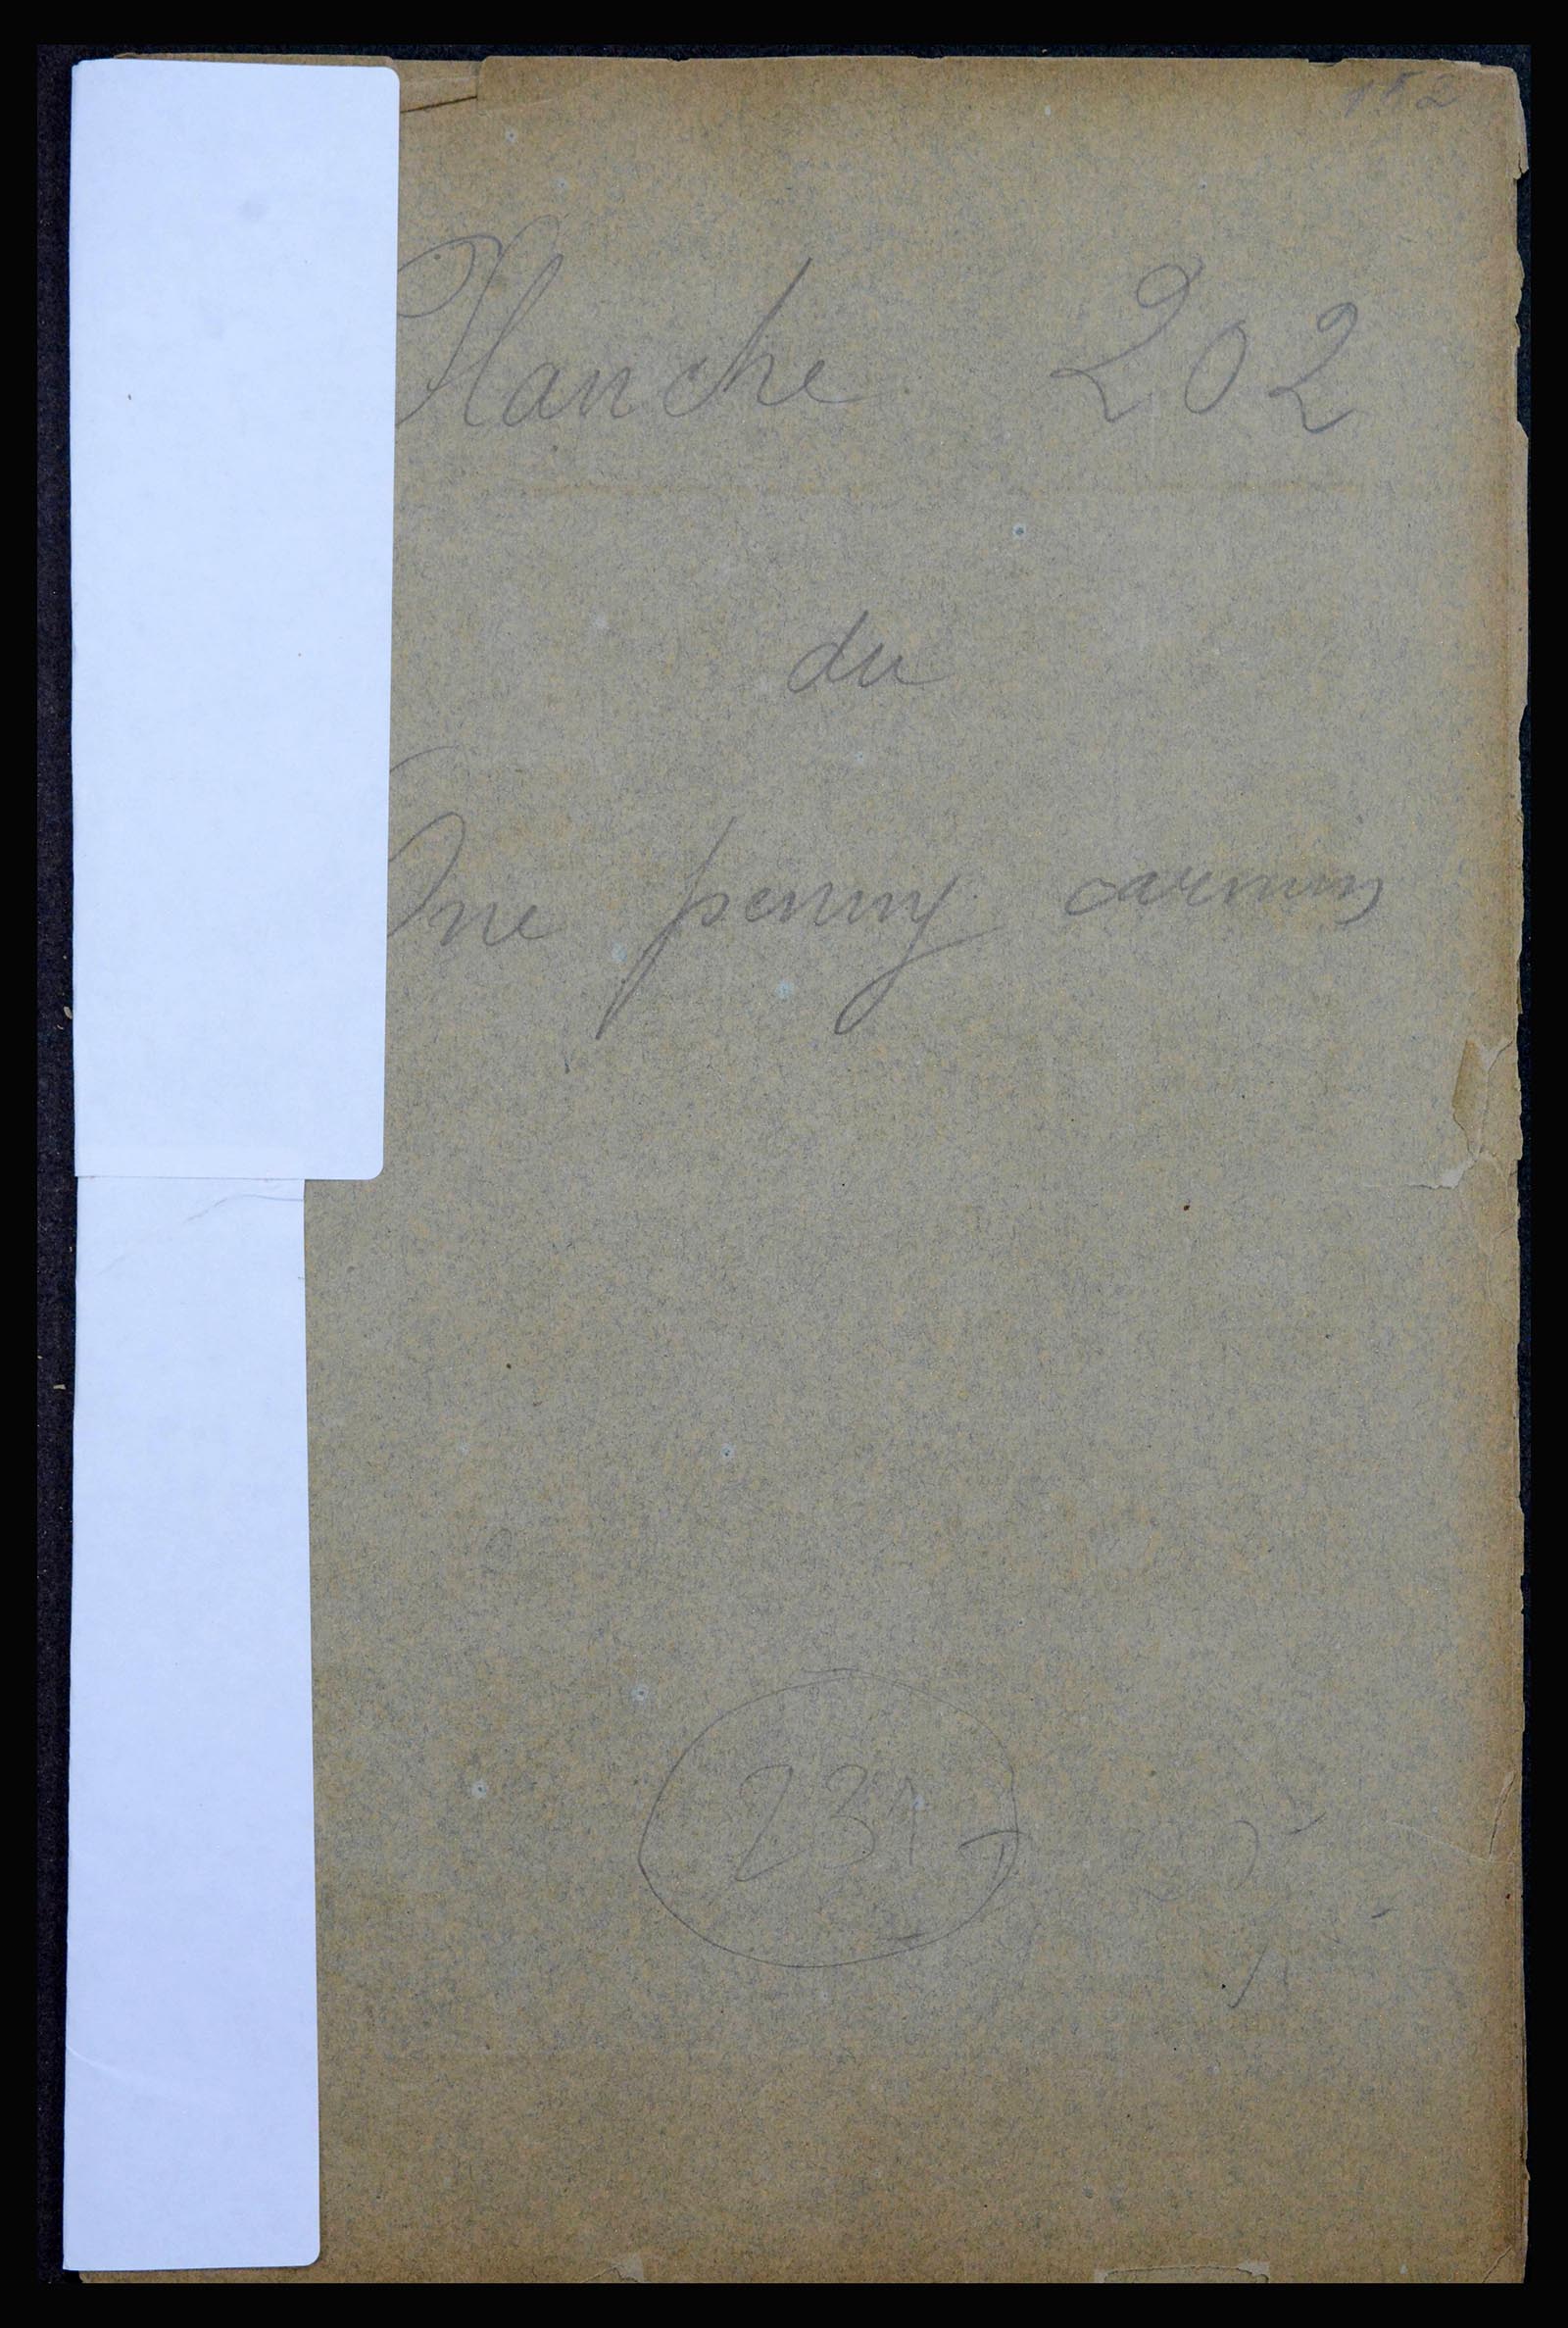 152
Planche 202
du
One penny carmin
231